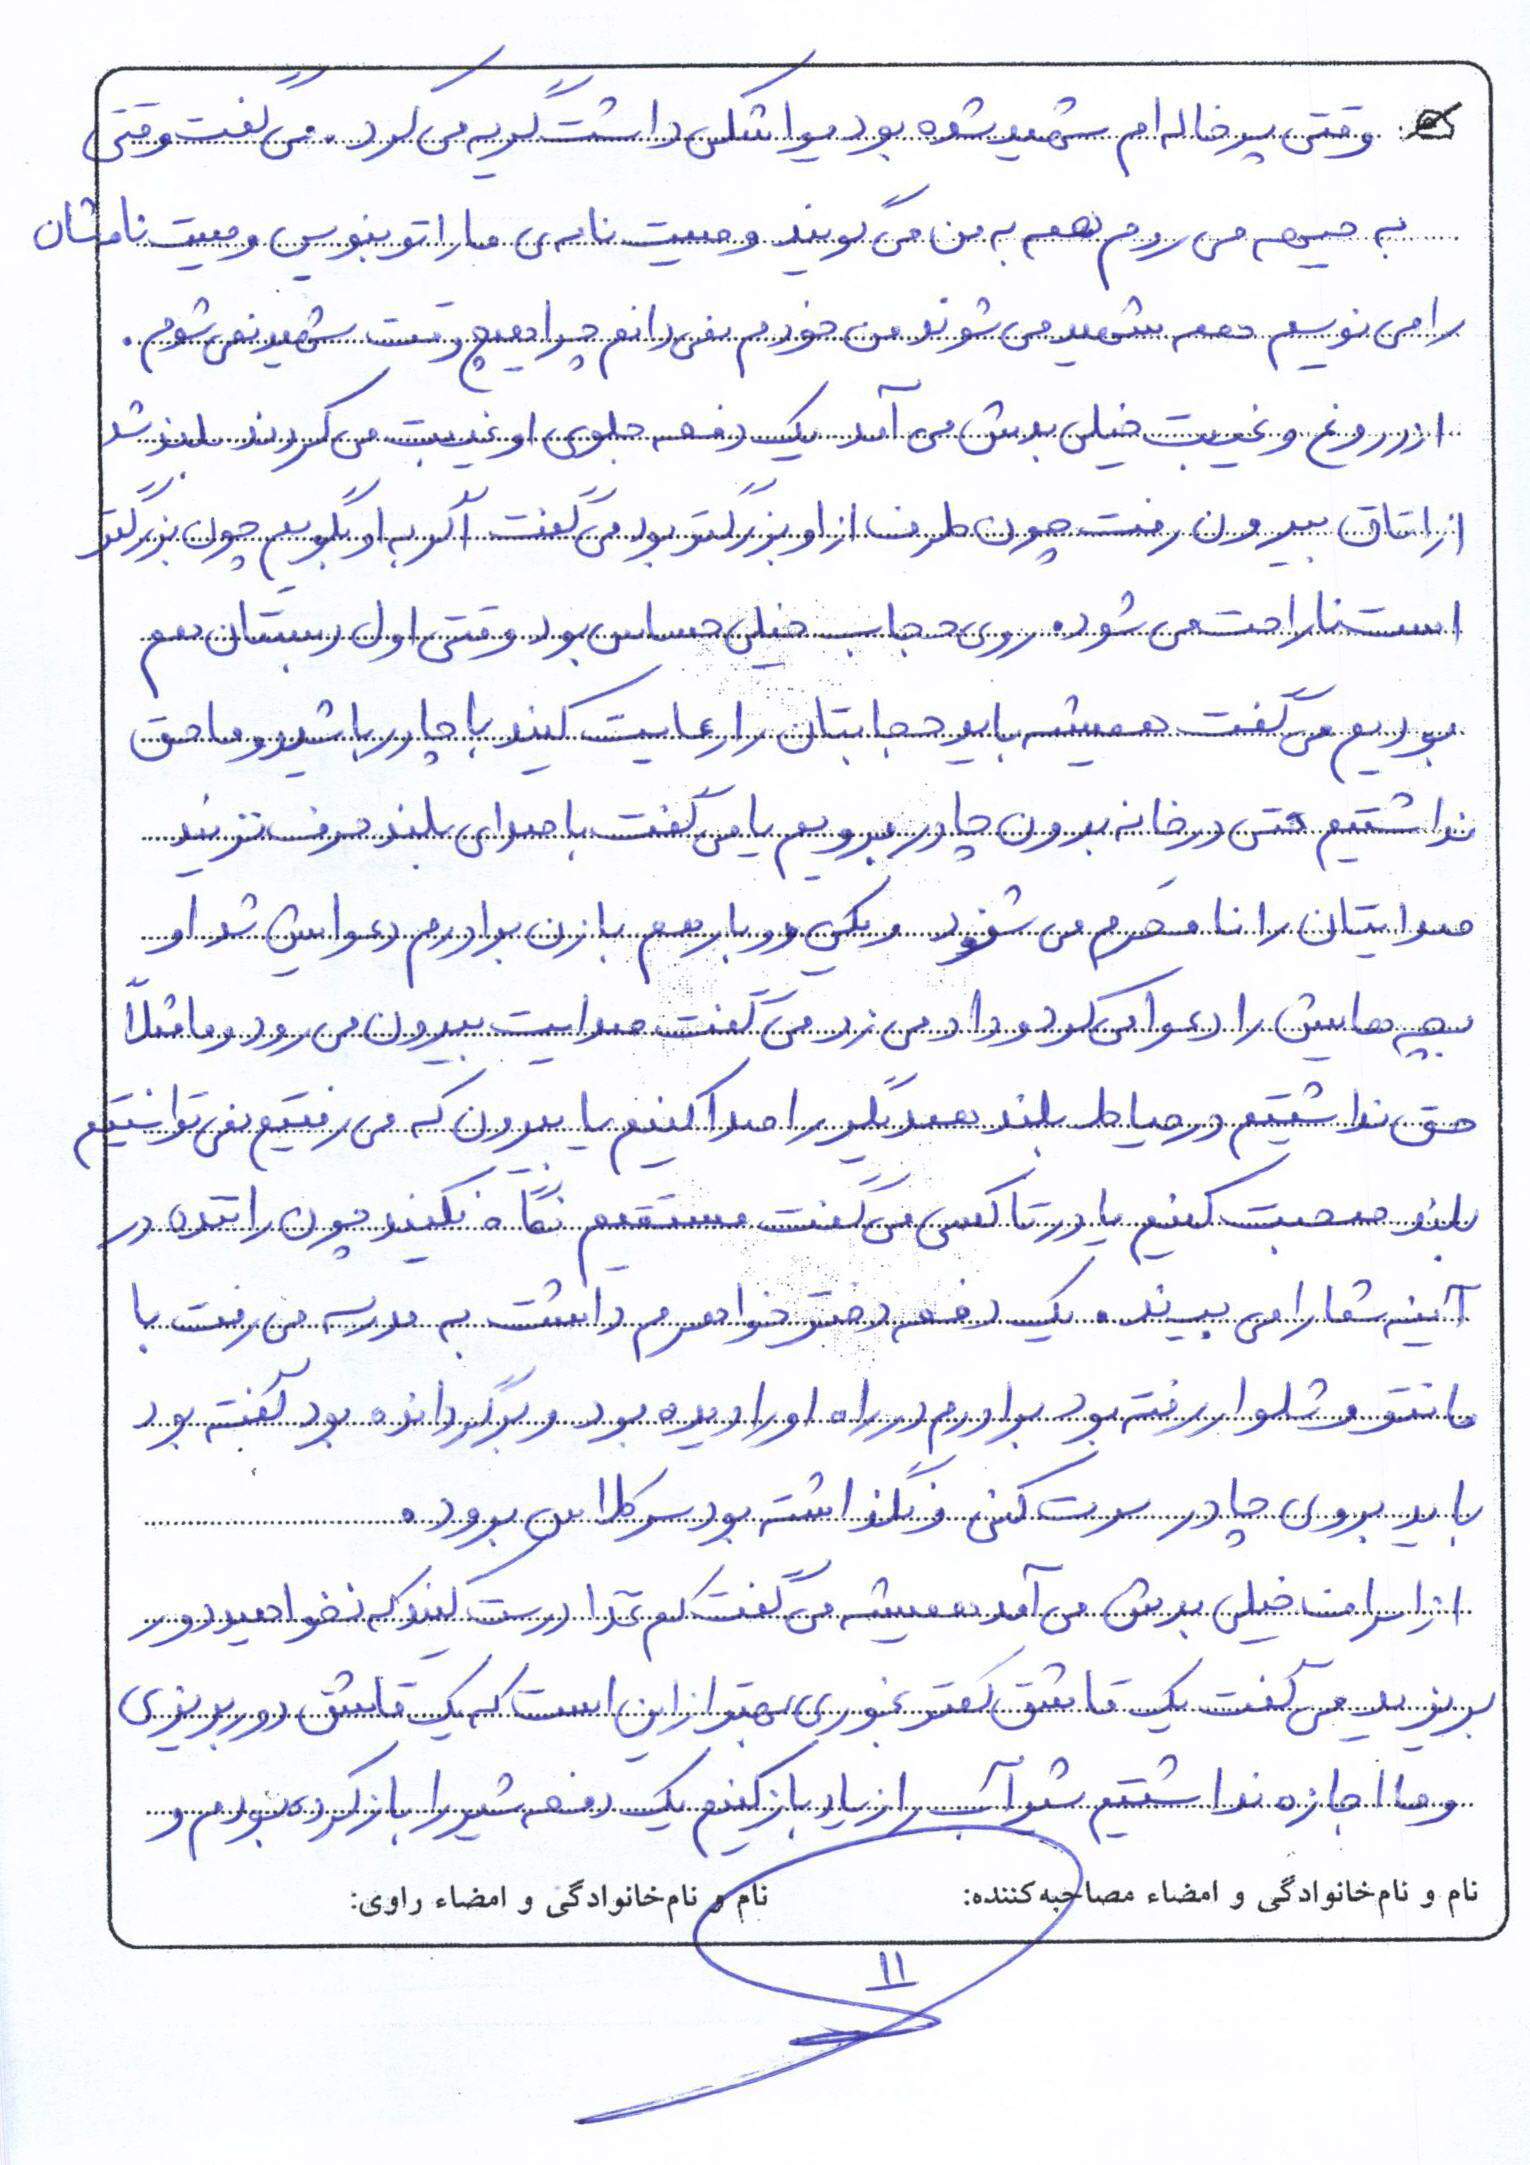 وقتی پسرخاله ام شهید شده بود یواشکی داشت گریه می کرد. می گفت وقتی
به جبهه می روم همه به من می گویند وصیت نامه ی ما را تو بنویس وصیت نامشان
را می نویسم همه شهید می شوند من خودم نمی دانم چرا هیچ وقت شهید نمی شوم.
از دروغ و غیبت خیلی بدش می آمد یک دفعه جلوی او غیبت می کردند بلند شد
از اتاق بیرون رفت چون طرف از او بزرگتر بود می گفت اگر به او بگویم چون بزرگتر
است ناراحت می شود. روی حجاب خیلی حساس بود وقتی اول دبستان هم
بودیم می گفت همیشه باید حجابتان را رعایت کنید با چادر باشید و ما حق
نداشتیم حتی در خانه بدون چادر برویم یا می گفت با صدای بلند حرف نزنید
صدایتان را نامحرم می شنود و یکی دو بار هم با زن برادرم دعوایش شد او
بچه هایش را دعوا می کرد و داد می زد می گفت صدایت بیرون می رود و ما مثلاً
حق نداشتیم در حیاط بلند همدیگر را صدا کنیم یا بیرون که می رفتیم نمی توانستیم
بلند صحبت کنیم یا در تاکسی می گفت مستقیم نگاه نکنید چون راننده در
آینه شما را می بیند. یک دفعه دختر خواهرم داشت به مدرسه می رفت با
مانتو و شلوار رفته بود برادرم در راه او را دیده بود و برگردانده بود گفته بود
باید بروی چادر سرت کنی و نگذاشته بود سر کلاس برود.
از اسراف خیلی بدش می آمد همیشه می گفت کم غذا درست کنید که نخواهید دور
بریزید می گفت یک قاشق کمتر بخوری بهتر از این است که یک قاشق دور بریزی
و ما اجازه نداشتیم شیر آب را زیاد باز کنیم یک دفعه شیر را باز کرده بودم و
نام و نام خانوادگی و امضاء مصاحبه کننده: نام و نام خانوادگی و امضاء راوی:
۱۱